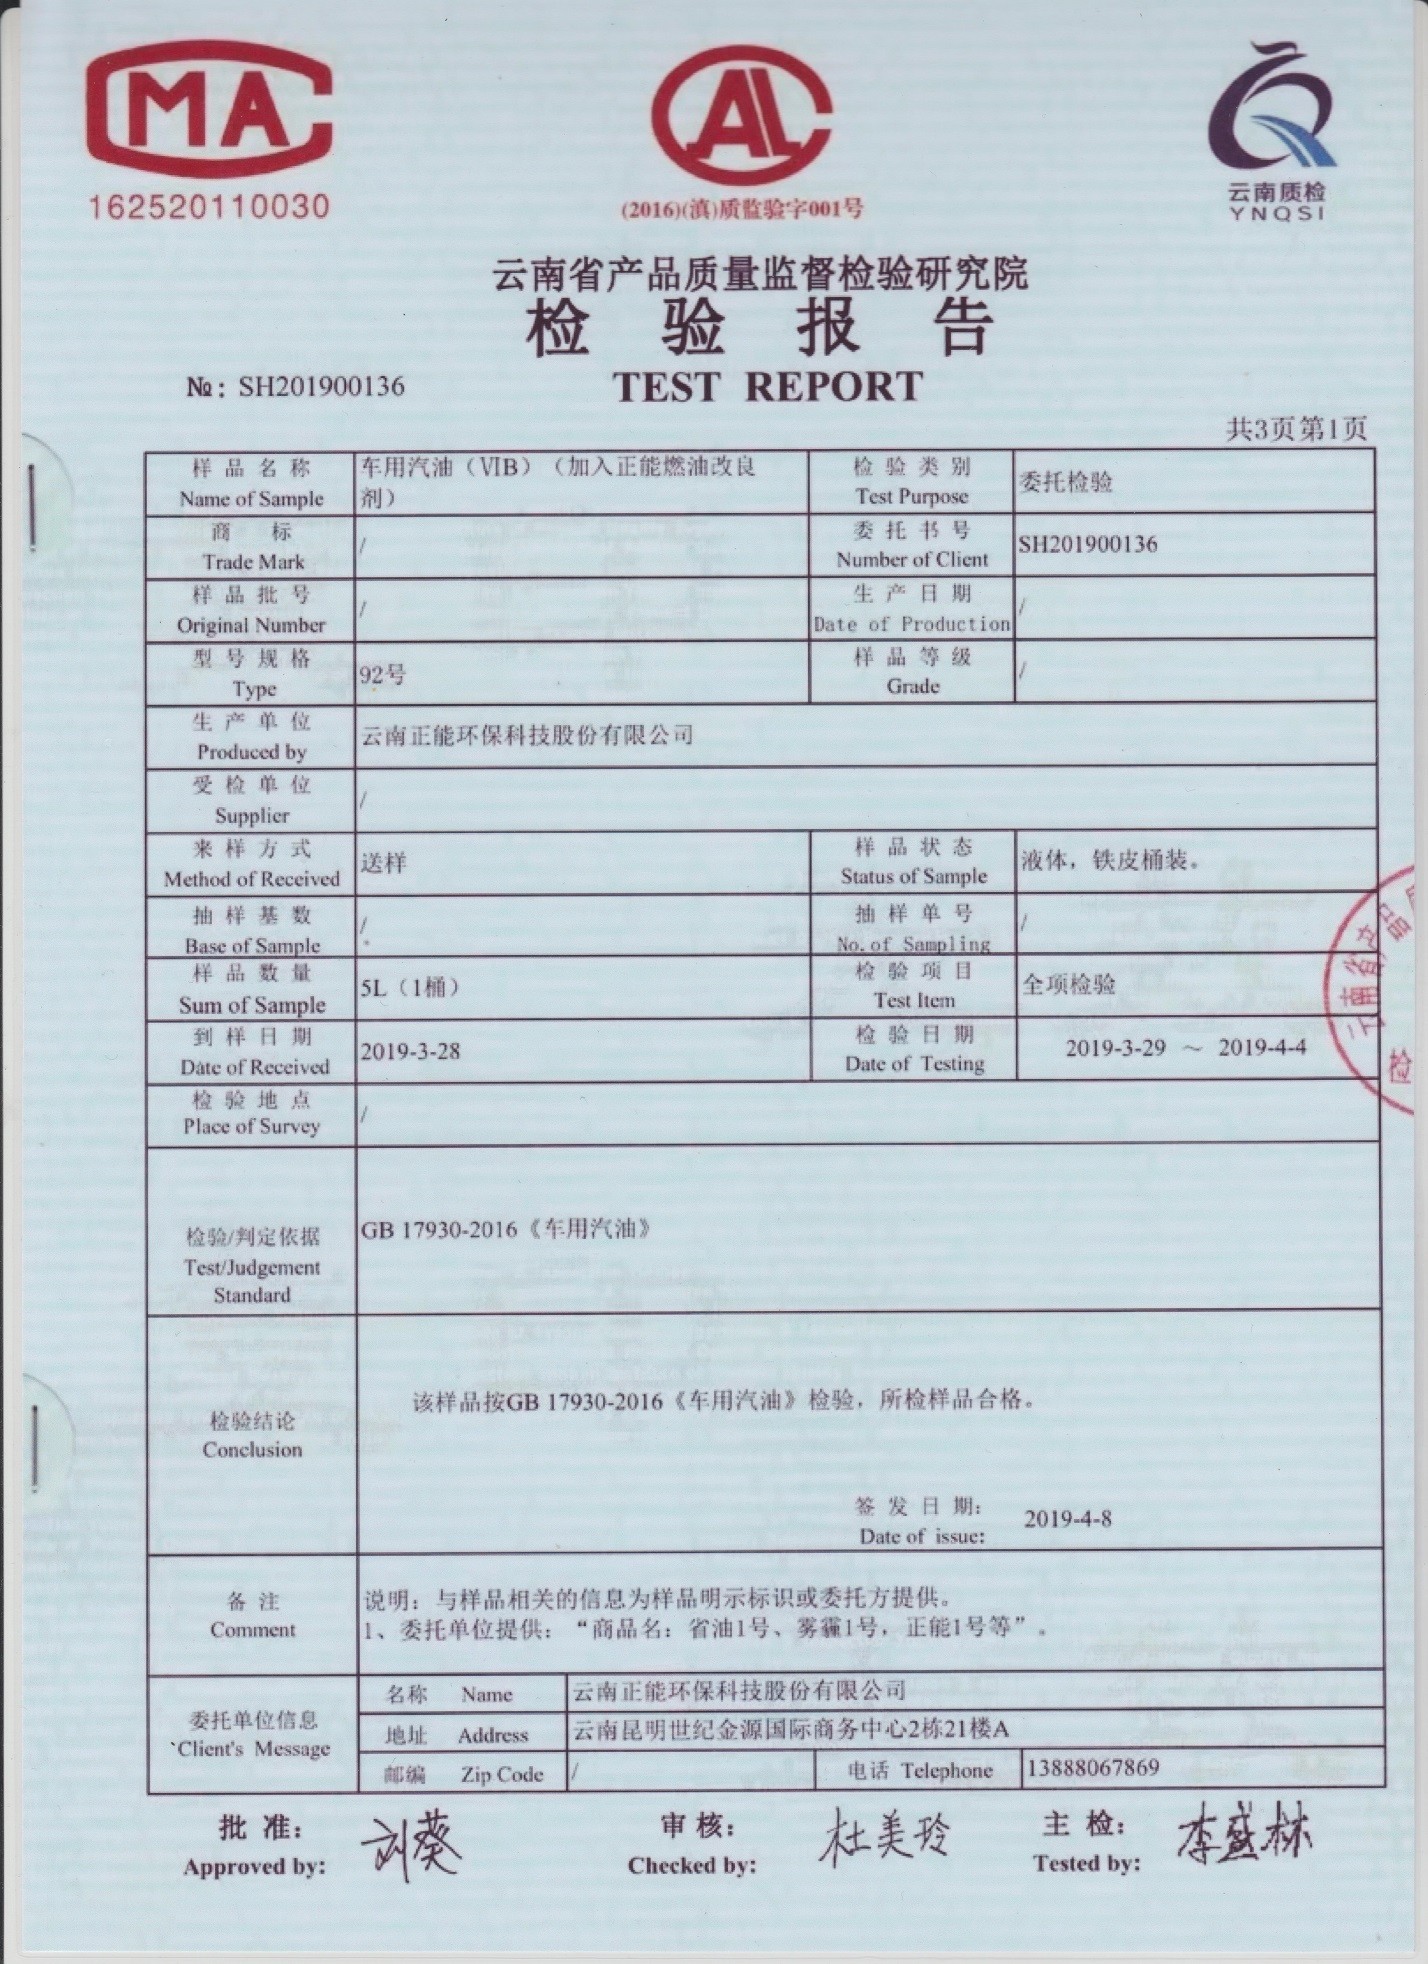 MA
162520110030
CAL
(2016)(滇)质监验字001号
云南质检
YNQSI
云南省产品质量监督检验研究院
检验报告
TEST REPORT
№: SH201900136
共3页第1页
样品名称 Name of Sample
车用汽油（ⅥB）（加入正能燃油改良
剂）
检验类别 Test Purpose
委托检验
商标 Trade Mark
/
委托书号 Number of Client
SH201900136
样品批号 Original Number
/
生产日期 Date of Production
/
型号规格 Type
92号
样品等级 Grade
/
生产单位 Produced by
云南正能环保科技股份有限公司
受检单位 Supplier
/
来样方式 Method of Received
送样
样品状态 Status of Sample
液体，铁皮桶装。
抽样基数 Base of Sample
/
抽样单号 No. of Sampling
/
样品数量 Sum of Sample
5L（1桶）
检验项目 Test Item
全项检验
到样日期 Date of Received
2019-3-28
检验日期 Date of Testing
2019-3-29 ～ 2019-4-4
检验地点 Place of Survey
/
检验/判定依据
Test/Judgement
Standard
GB 17930-2016《车用汽油》
检验结论
Conclusion
该样品按GB 17930-2016《车用汽油》检验，所检样品合格。
签发日期:
Date of issue:
2019-4-8
备注
Comment
说明：与样品相关的信息为样品明示标识或委托方提供。
1、委托单位提供：“商品名：省油1号、雾霾1号，正能1号等”。
委托单位信息
`Client's Message
名称 Name
云南正能环保科技股份有限公司
地址 Address
云南昆明世纪金源国际商务中心2栋21楼A
邮编 Zip Code
/
电话 Telephone
13888067869
批准:
Approved by:
刘葵
审核:
Checked by:
杜美玲
主检:
Tested by:
李盛林
云南省产品
检